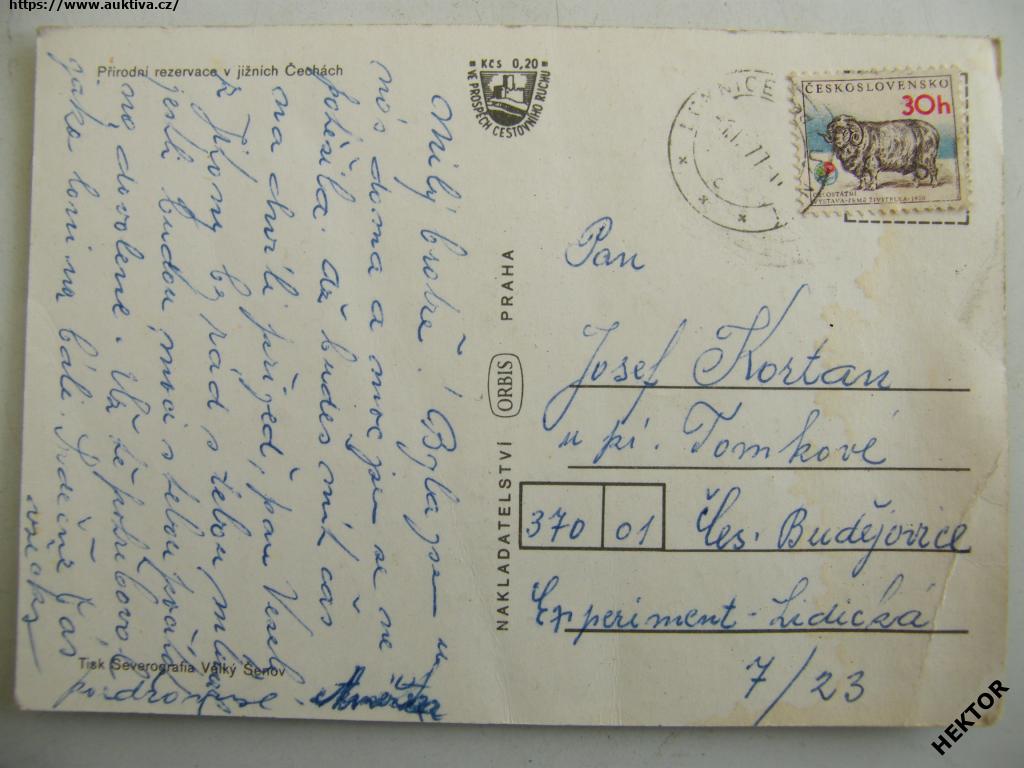 https://www.auktiva.cz/
Přírodní rezervace v jižních Čechách
Kčs 0,20
VE PROSPĚCH CESTOVNÍHO RUCHU
ČESKOSLOVENSKO
30h
Milý bratře! Byla jsem u
nás doma a moc jsem se ne
potěšila. Až budeš mít čas
na chvíli přijeď, pan Vesel
z Thony by rád s tebou mluvil
jestli budou moci s tebou
na dovolené. Už tě
jako loni na bále. Srdečně Vás
všecky
pozdravuje
Anežka
NAKLADATELSTVÍ ORBIS PRAHA
Pan
Josef Kortan
u pí. Tomkové
370 01 Čes. Budějovice
Experiment - Lidická
7/23
Tisk Severografia Velký Šenov
HEKTOR